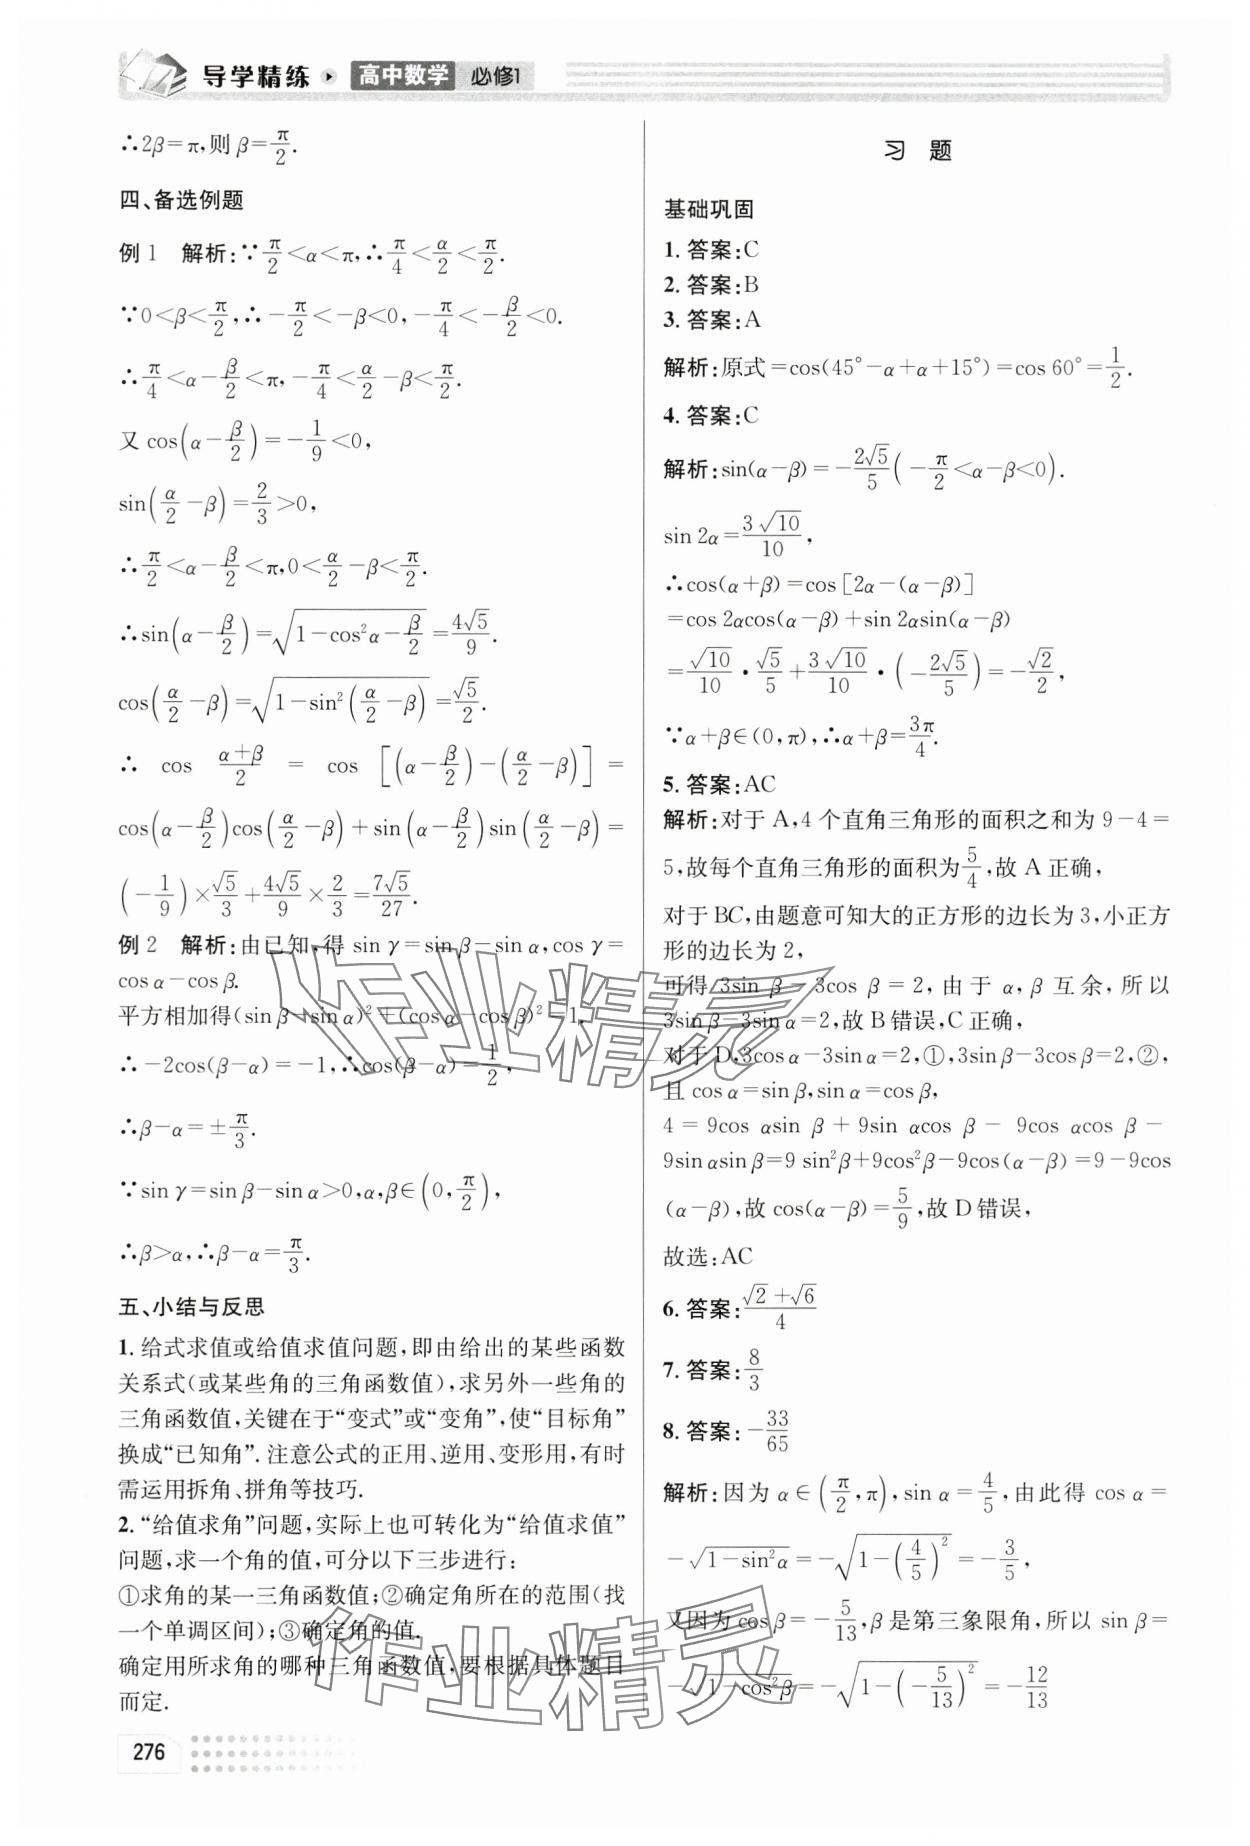 导学精练 高中数学 必修1
∴2β=π,则 β=π/2.
四、备选例题
例 1 解析:∵π/2<α<π,∴π/4<α/2<π/2.
∵0<β<π/2,∴-π/2<-β<0,-π/4<-β/2<0.
∴π/4<α-β/2<π,-π/4<α/2-β<π/2.
又 cos(α-β/2)=-1/9<0,
sin(α/2-β)=2/3>0,
∴π/2<α-β/2<π,0<α/2-β<π/2.
∴sin(α-β/2)=√(1-cos²α-β/2)=4√5/9.
cos(α/2-β)=√(1-sin²(α/2-β))=√5/2.
∴ cos (α+β)/2 = cos [(α-β/2)-(α/2-β)] =
cos(α-β/2)cos(α/2-β)+sin(α-β/2)sin(α/2-β)=
(-1/9)×√5/3+4√5/9×2/3=7√5/27.
例 2 解析:由已知,得 sin γ=sin β-sin α,cos γ=
cos α-cos β.
平方相加得(sin β-sin α)²+(cos α-cos β)²=1,
∴-2cos(β-α)=-1,∴cos(β-α)=1/2,
∴β-α=±π/3.
∵sin γ=sin β-sin α>0,α,β∈(0,π/2),
∴β>α,∴β-α=π/3.
五、小结与反思
1. 给式求值或给值求值问题,即由给出的某些函数
关系式(或某些角的三角函数值),求另外一些角的
三角函数值,关键在于“变式”或“变角”,使“目标角”
换成“已知角”. 注意公式的正用、逆用、变形用,有时
需运用拆角、拼角等技巧.
2. “给值求角”问题,实际上也可转化为“给值求值”
问题,求一个角的值,可分以下三步进行:
①求角的某一三角函数值;②确定角所在的范围(找
一个单调区间);③确定角的值.
确定用所求角的哪种三角函数值,要根据具体题目
而定.
276
习 题
基础巩固
1. 答案:C
2. 答案:B
3. 答案:A
解析:原式=cos(45°-α+α+15°)=cos 60°=1/2.
4. 答案:C
解析:sin(α-β)=-2√5/5(-π/2<α-β<0).
sin 2α=3√10/10,
∴cos(α+β)=cos[2α-(α-β)]
=cos 2αcos(α-β)+sin 2αsin(α-β)
=√10/10·√5/5+3√10/10·(-2√5/5)=-√2/2,
∵α+β∈(0,π),∴α+β=3π/4.
5. 答案:AC
解析:对于 A,4 个直角三角形的面积之和为 9-4=
5,故每个直角三角形的面积为5/4,故 A 正确,
对于 BC,由题意可知大的正方形的边长为 3,小正方
形的边长为 2,
可得 3sin β-3cos β=2,由于 α,β 互余,所以
3sin β-3sin α=2,故 B 错误,C 正确,
对于 D,3cos α-3sin α=2,①,3sin β-3cos β=2,②,
且 cos α=sin β,sin α=cos β,
4 = 9cos αsin β + 9sin αcos β - 9cos αcos β -
9sin αsin β=9 sin²β+9cos²β-9cos(α-β)=9-9cos
(α-β),故 cos(α-β)=5/9,故 D 错误,
故选:AC
6. 答案:(√2+√6)/4
7. 答案:8/3
8. 答案:-33/65
解析:因为 α∈(π/2,π),sin α=4/5,由此得 cos α=
-√(1-sin²α)=-√(1-(4/5)²)=-3/5,
又因为 cos β=-5/13,β 是第三象限角,所以 sin β=
-√(1-cos²β)=-√(1-(-5/13)²)=-12/13
作业精灵
作业精灵